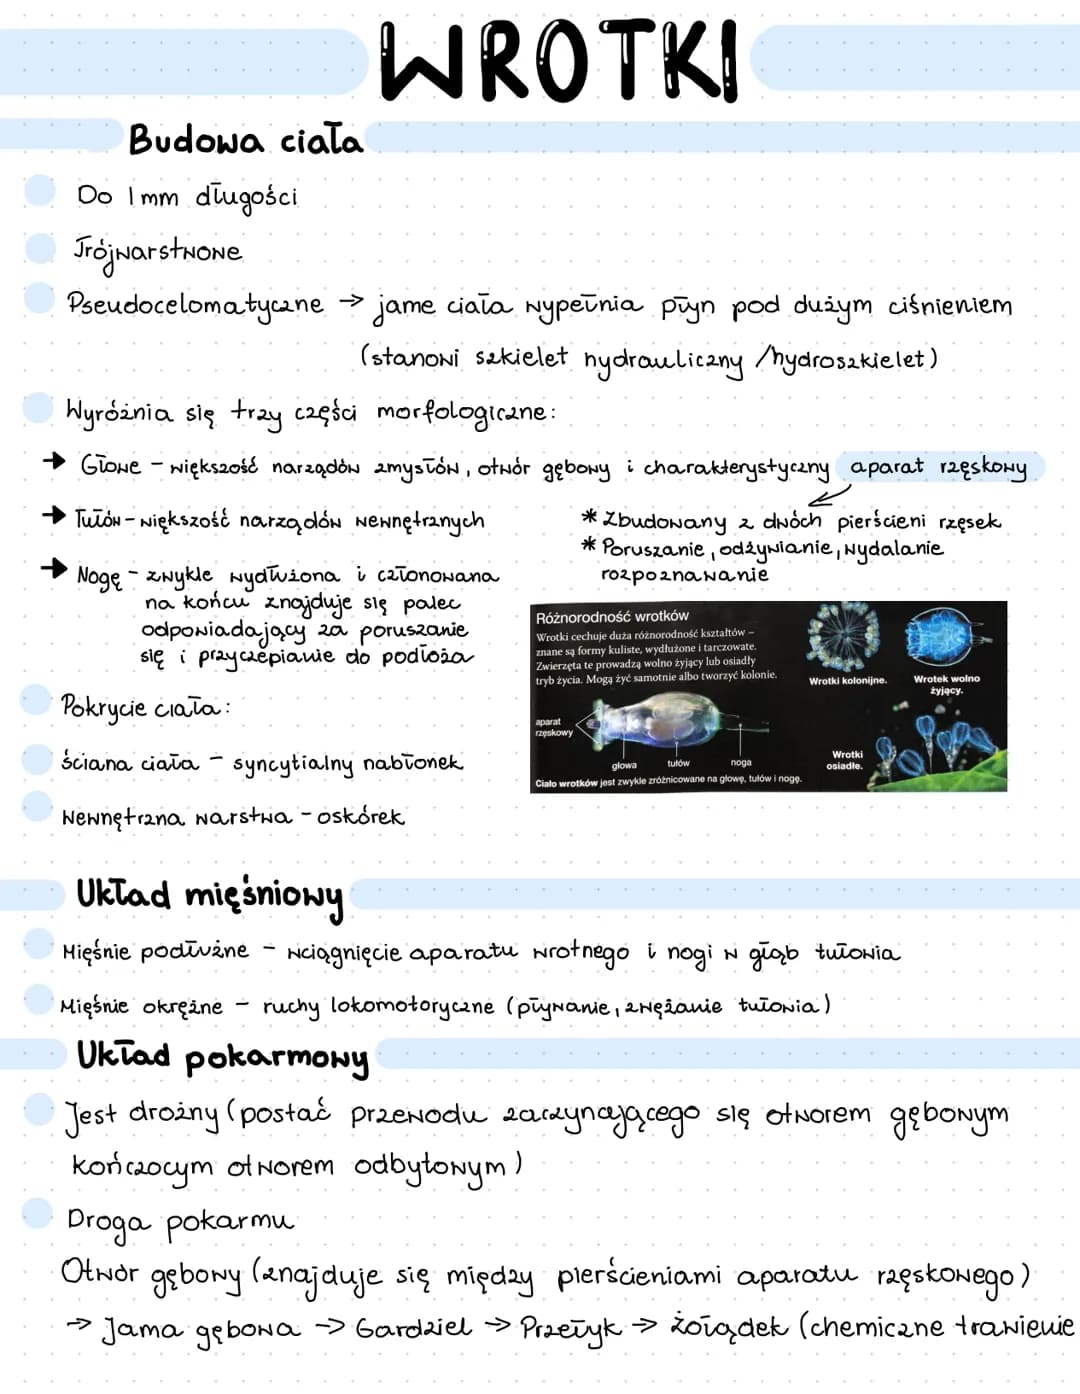 WROTKI
Budowa ciała
Do 1mm długości
Trójwarstwowe
Pseudocelomatyczne → jamę ciała wypełnia płyn pod dużym ciśnieniem
(stanowi szkielet hydrauliczny /hydroszkielet)
Wyróżnia się trzy części morfologiczne:
→ Głowę - większość narządów zmysłów, otwór gębowy i charakterystyczny aparat rzęskowy
→ Tułów - większość narządów wewnętrznych
* Zbudowany z dwóch pierścieni rzęsek
* Poruszanie, odżywianie, wydalanie
rozpoznawanie
→ Nogę - zwykle wydłużona i członowana
na końcu znajduje się palec
odpowiadający za poruszanie
się i przyczepianie do podłoża
Różnorodność wrotków
Wrotki cechuje duża różnorodność kształtów –
znane są formy kuliste, wydłużone i tarczowate.
Zwierzęta te prowadzą wolno żyjący lub osiadły
tryb życia. Mogą żyć samotnie albo tworzyć kolonie.
Wrotki kolonijne.
Wrotek wolno
żyjący.
aparat
rzęskowy
głowa
tułów
noga
Wrotki
osiadłe.
Ciało wrotków jest zwykle zróżnicowane na głowę, tułów i nogę.
Pokrycie ciała:
ściana ciała - syncytialny nabłonek
wewnętrzna warstwa - oskórek
Układ mięśniowy
Mięśnie podłużne - wciągnięcie aparatu wrotnego i nogi w głąb tułowia
Mięśnie okrężne - ruchy lokomotoryczne (pływanie, zwężanie tułowia)
Układ pokarmowy
Jest drożny (postać przewodu zaczynającego się otworem gębowym
kończocym otworem odbytowym)
Droga pokarmu
Otwór gębowy (znajduje się między pierścieniami aparatu rzęskowego)
→ Jama gębowa → Gardziel → Przełyk → żołądek (chemiczne trawienie